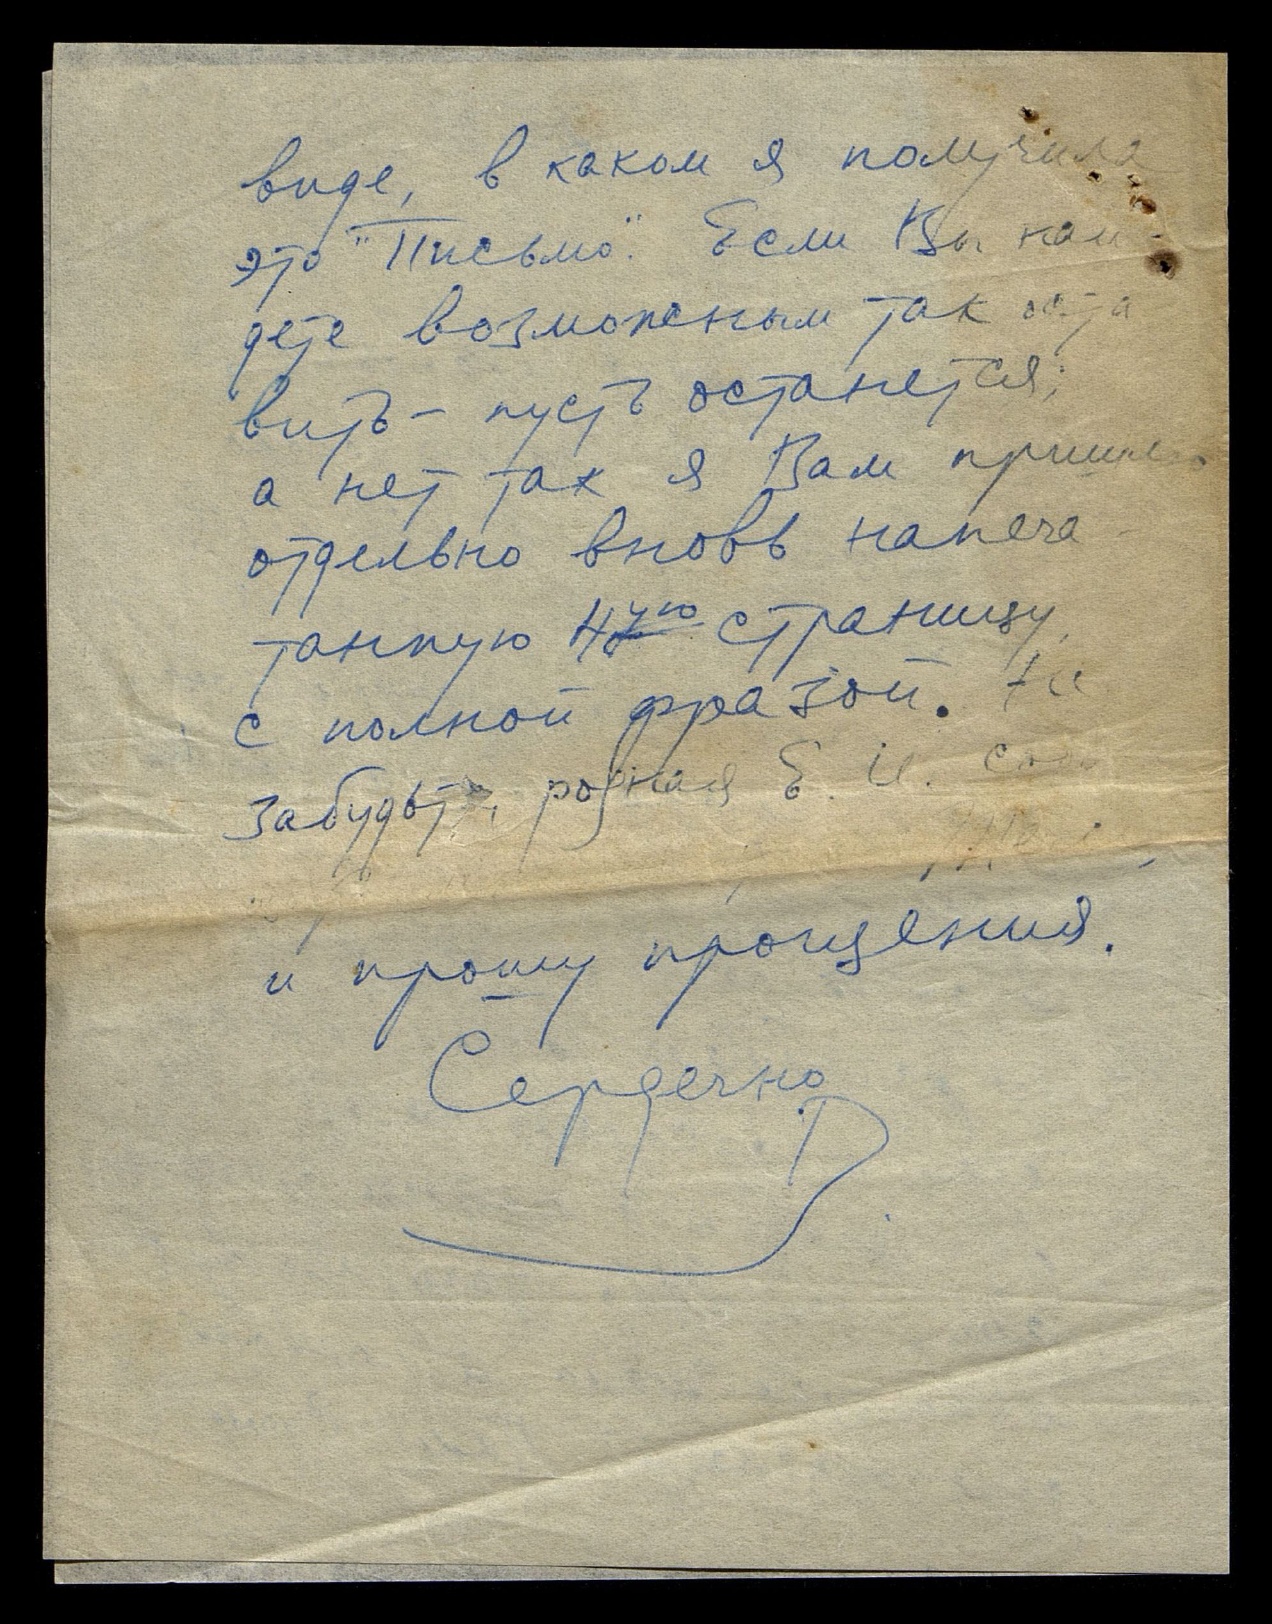 виде, в каком я получила
это "Письмо". Если Вы най-
дете возможным так оста
вить - пусть останется;
а нет так я Вам пришлю
отдельно вновь напеча-
танную 4ую страницу,
с полной фразой. Не
забудьте, родная Е. И.
и прошу прощения.
Сердечно